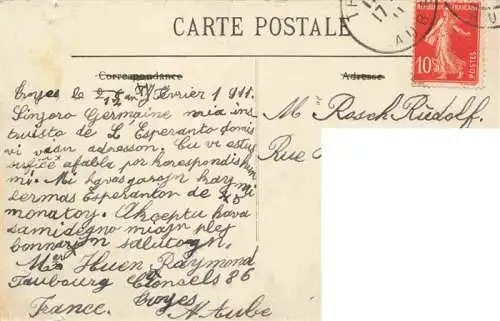 CARTE POSTALE
Correspondance
Adresse
REPUBLIQUE FRANÇAISE
10c
POSTES
TR
17
AUB
Troyes le Février 1911.
Sinjoro Germaine mia ins
truisto de L Esperanto donis
vi vian adreson. Ĉu vi estus
sufiĉe afabla por korespondi kun
mi. Mi havas jarojn kaj
lernas Esperanton de mi
monatoj. Akceptu kara
samideano miajn plej
bonnajn salutojn.
Mr Huen Raymond
Faubourg Cronsels 86
Troyes
France. Aube
Mr Rosch Rudolf.
Rue